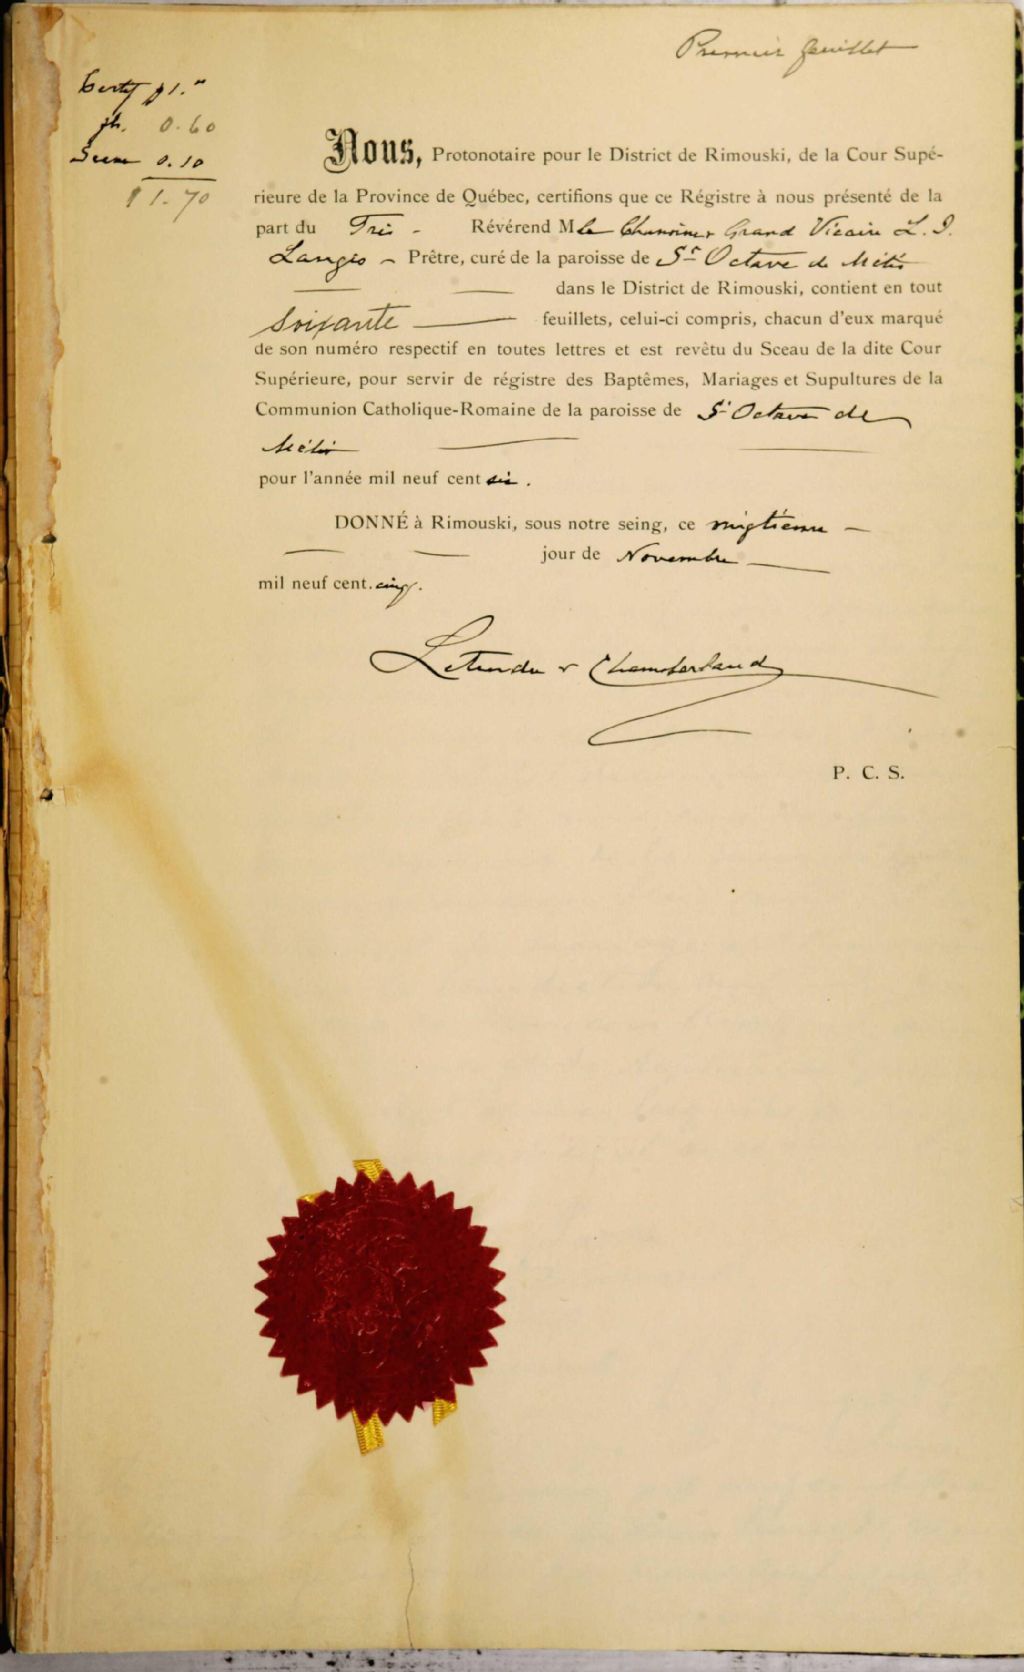 Premier feuillet
Certif $1."
fts. 0.60
Sceau 0.10
$1.70
Nous, Protonotaire pour le District de Rimouski, de la Cour Supé-
rieure de la Province de Québec, certifions que ce Régistre à nous présenté de la
part du Très - Révérend M le Chanoine & Grand Vicaire L. J.
Langis - Prêtre, curé de la paroisse de St Octave de Métis
dans le District de Rimouski, contient en tout
Soixante feuillets, celui-ci compris, chacun d'eux marqué
de son numéro respectif en toutes lettres et est revêtu du Sceau de la dite Cour
Supérieure, pour servir de régistre des Baptêmes, Mariages et Supultures de la
Communion Catholique-Romaine de la paroisse de St Octave de
Métis
pour l'année mil neuf cent six.
DONNÉ à Rimouski, sous notre seing, ce vingtième -
jour de Novembre
mil neuf cent. cinq.
Letendre & Chamberland
P. C. S.